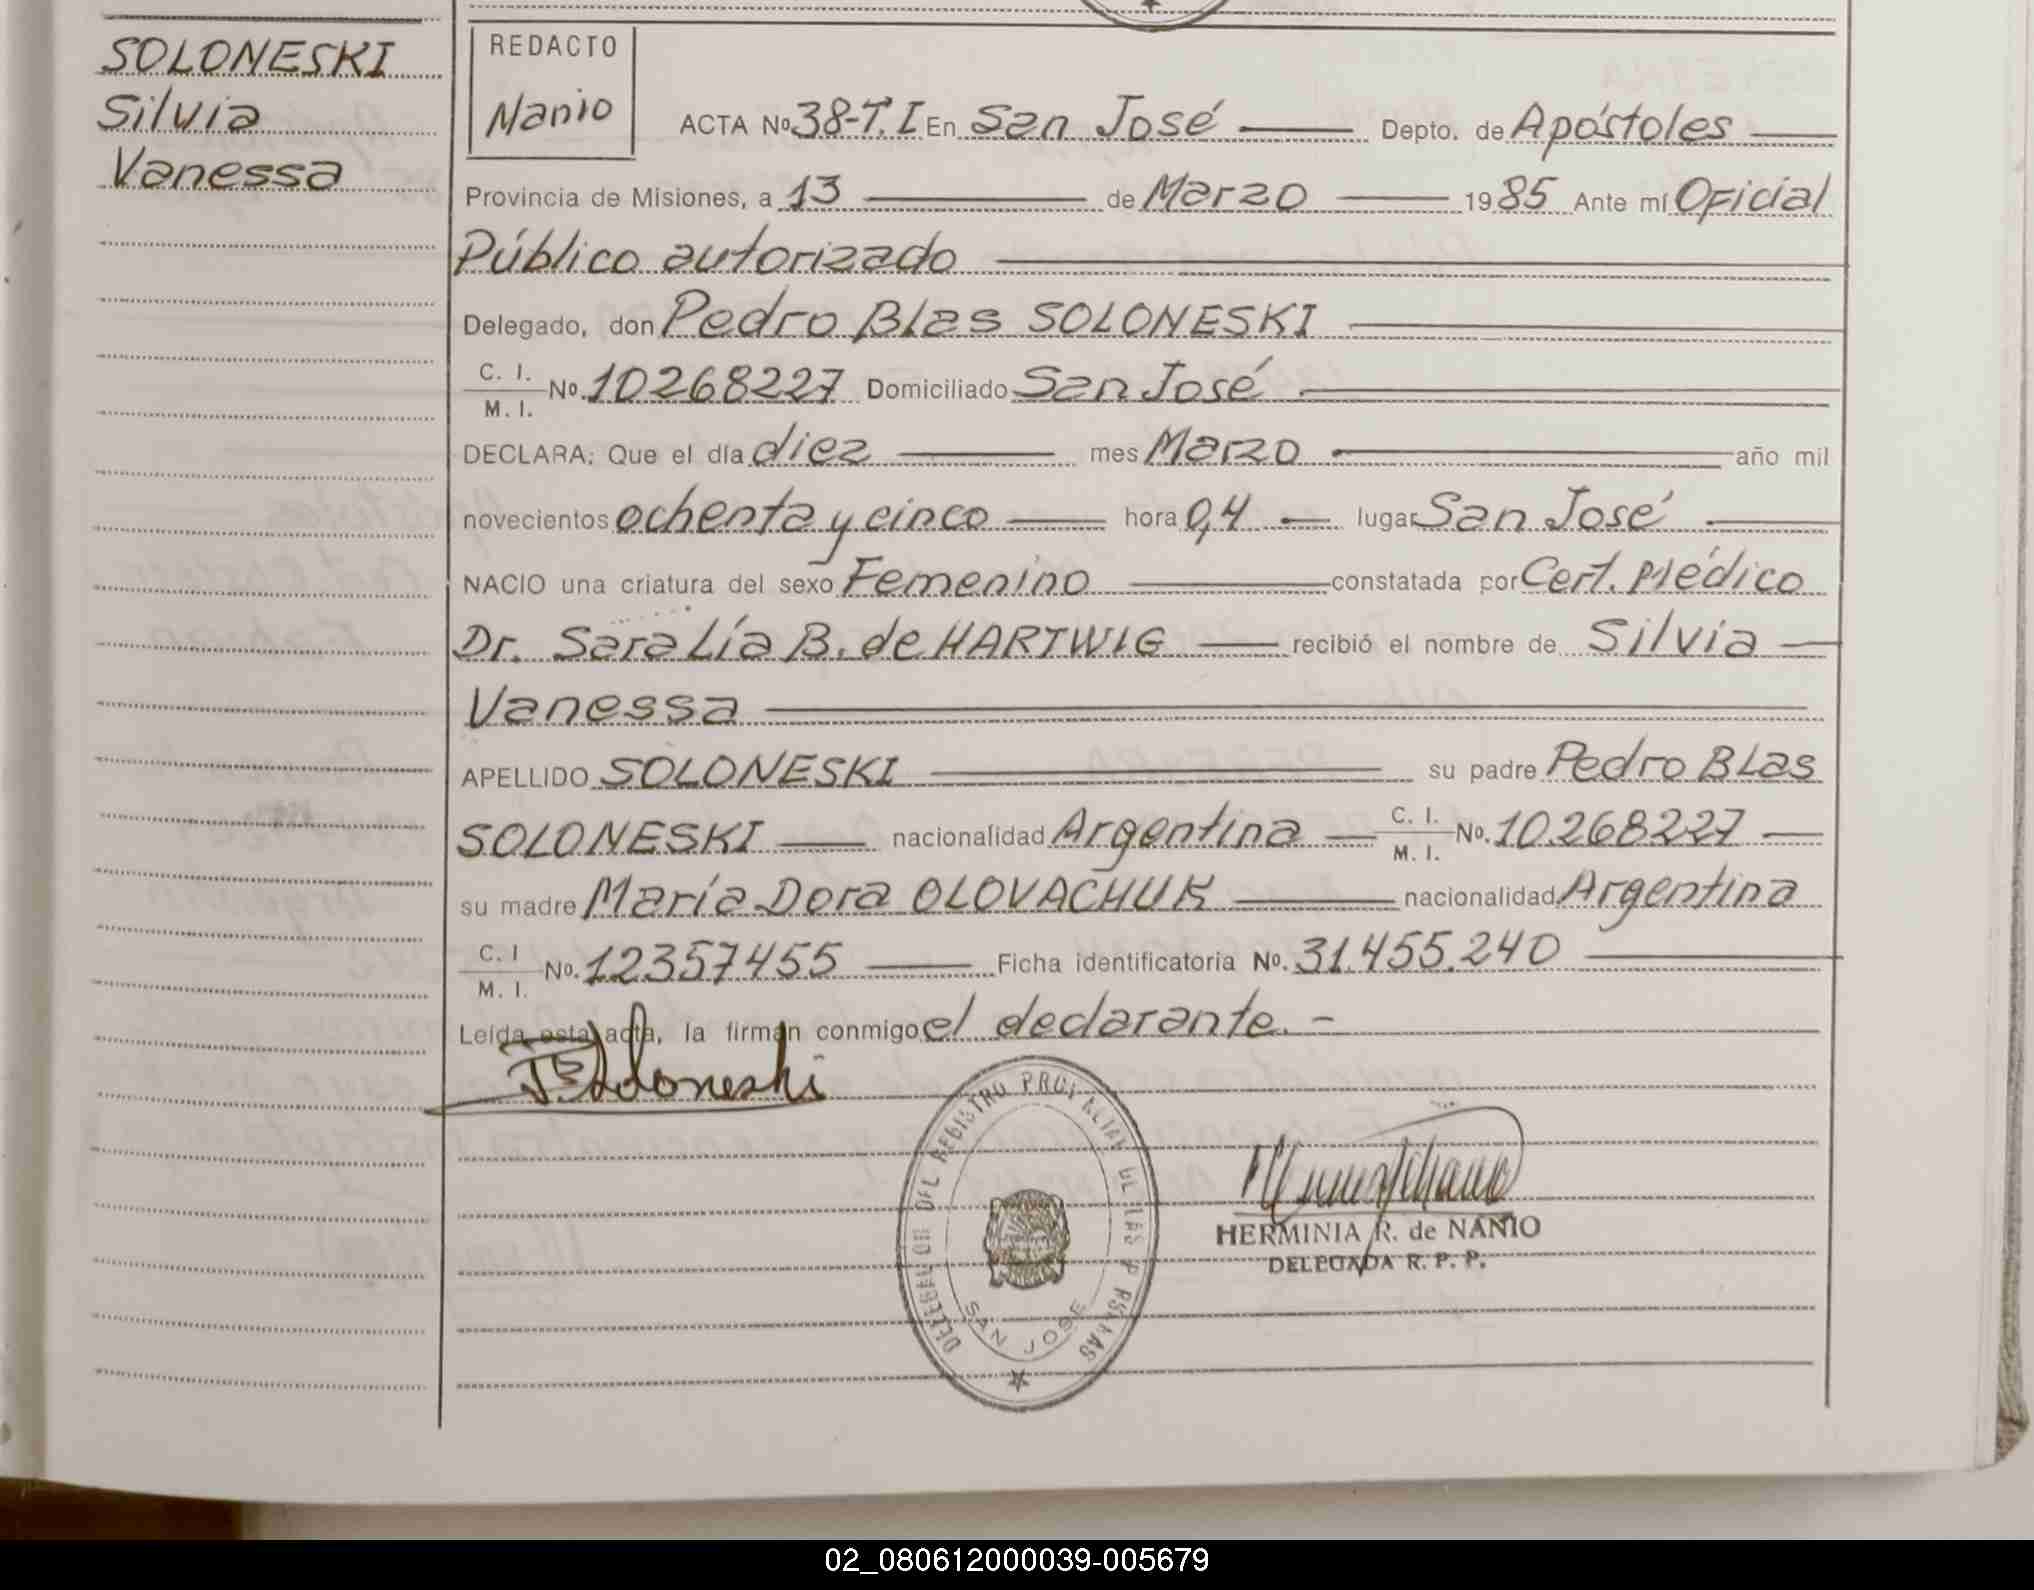 SOLONESKI
Silvia
Vanessa
REDACTO
Nanio
ACTA Nº 38-T.I En San José Depto. de Apóstoles
Provincia de Misiones, a 13 de Marzo 1985 Ante mí Oficial
Público autorizado
Delegado, don Pedro Blas SOLONESKI
C. I.
M. I. Nº. 10268227 Domiciliado San José
DECLARA: Que el día diez mes Marzo año mil
novecientos ochenta y cinco hora 0,4 lugar San José
NACIO una criatura del sexo Femenino constatada por Cert. Médico
Dr. Sara Lía B. de HARTWIG recibió el nombre de Silvia
Vanessa
APELLIDO SOLONESKI su padre Pedro BLas
SOLONESKI nacionalidad Argentina C. I. M. I. Nº. 10.268227
su madre María Dora OLOVACHUK nacionalidad Argentina
C. I
M. I. Nº. 12357455 Ficha identificatoria Nº. 31.455.240
Leída esta acta, la firman conmigo el declarante.-
Soloneski
DEL REGISTRO DE LAS
SAN JOSE
HERMINIA R. de NANIO
DELEGADA R. P. P.
02_080612000039-005679